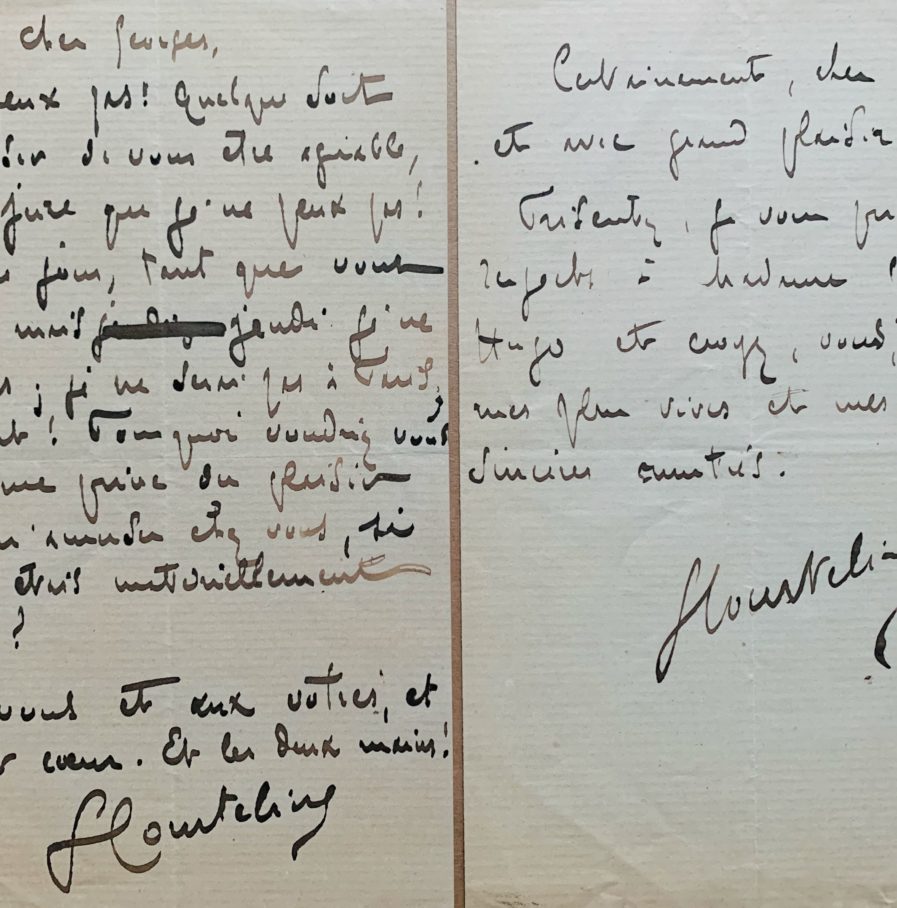 cher Georges,
eux pas! Quelque soit
sir de vous être agréable,
jure que je ne peux pas!
jour, tant que vous
mais jeudi je ne
s; je ne serai pas à Paris,
t! Pourquoi voudriez vous
me prive du plaisir
chez vous, si
étais matériellement
?
vous et aux vôtres, et
cœur. Et les deux mains!
G Courteline
Certainement, cher
et avec grand plaisir
Présentez, je vous pr
respects à Madame
Hugo et croyez, vous,
mes plus vives et mes
sincères amitiés.
G Courteli